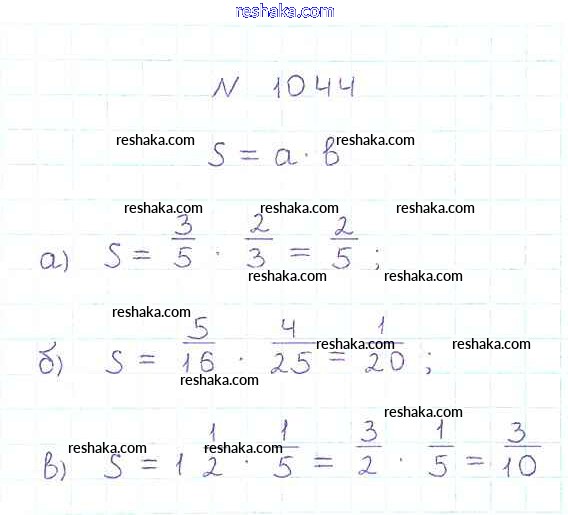 reshaka.com
N 1044
reshaka.com reshaka.com
S = a · b
reshaka.com reshaka.com reshaka.com
а) S = 3/5 · 2/3 = 2/5 ;
reshaka.com reshaka.com
reshaka.com
б) S = 5/16 · 4/25 = 1/20 ;
reshaka.com reshaka.com
reshaka.com
reshaka.com
в) S = 1 1/2 · 1/5 = 3/2 · 1/5 = 3/10
reshaka.com reshaka.com reshaka.com